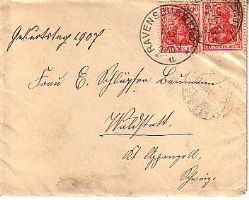 Geburtstag 1907
RAVENSBURG
Frau E. Schlüpfer Baumann
Waldstatt
Kt Appenzell
Schweiz.